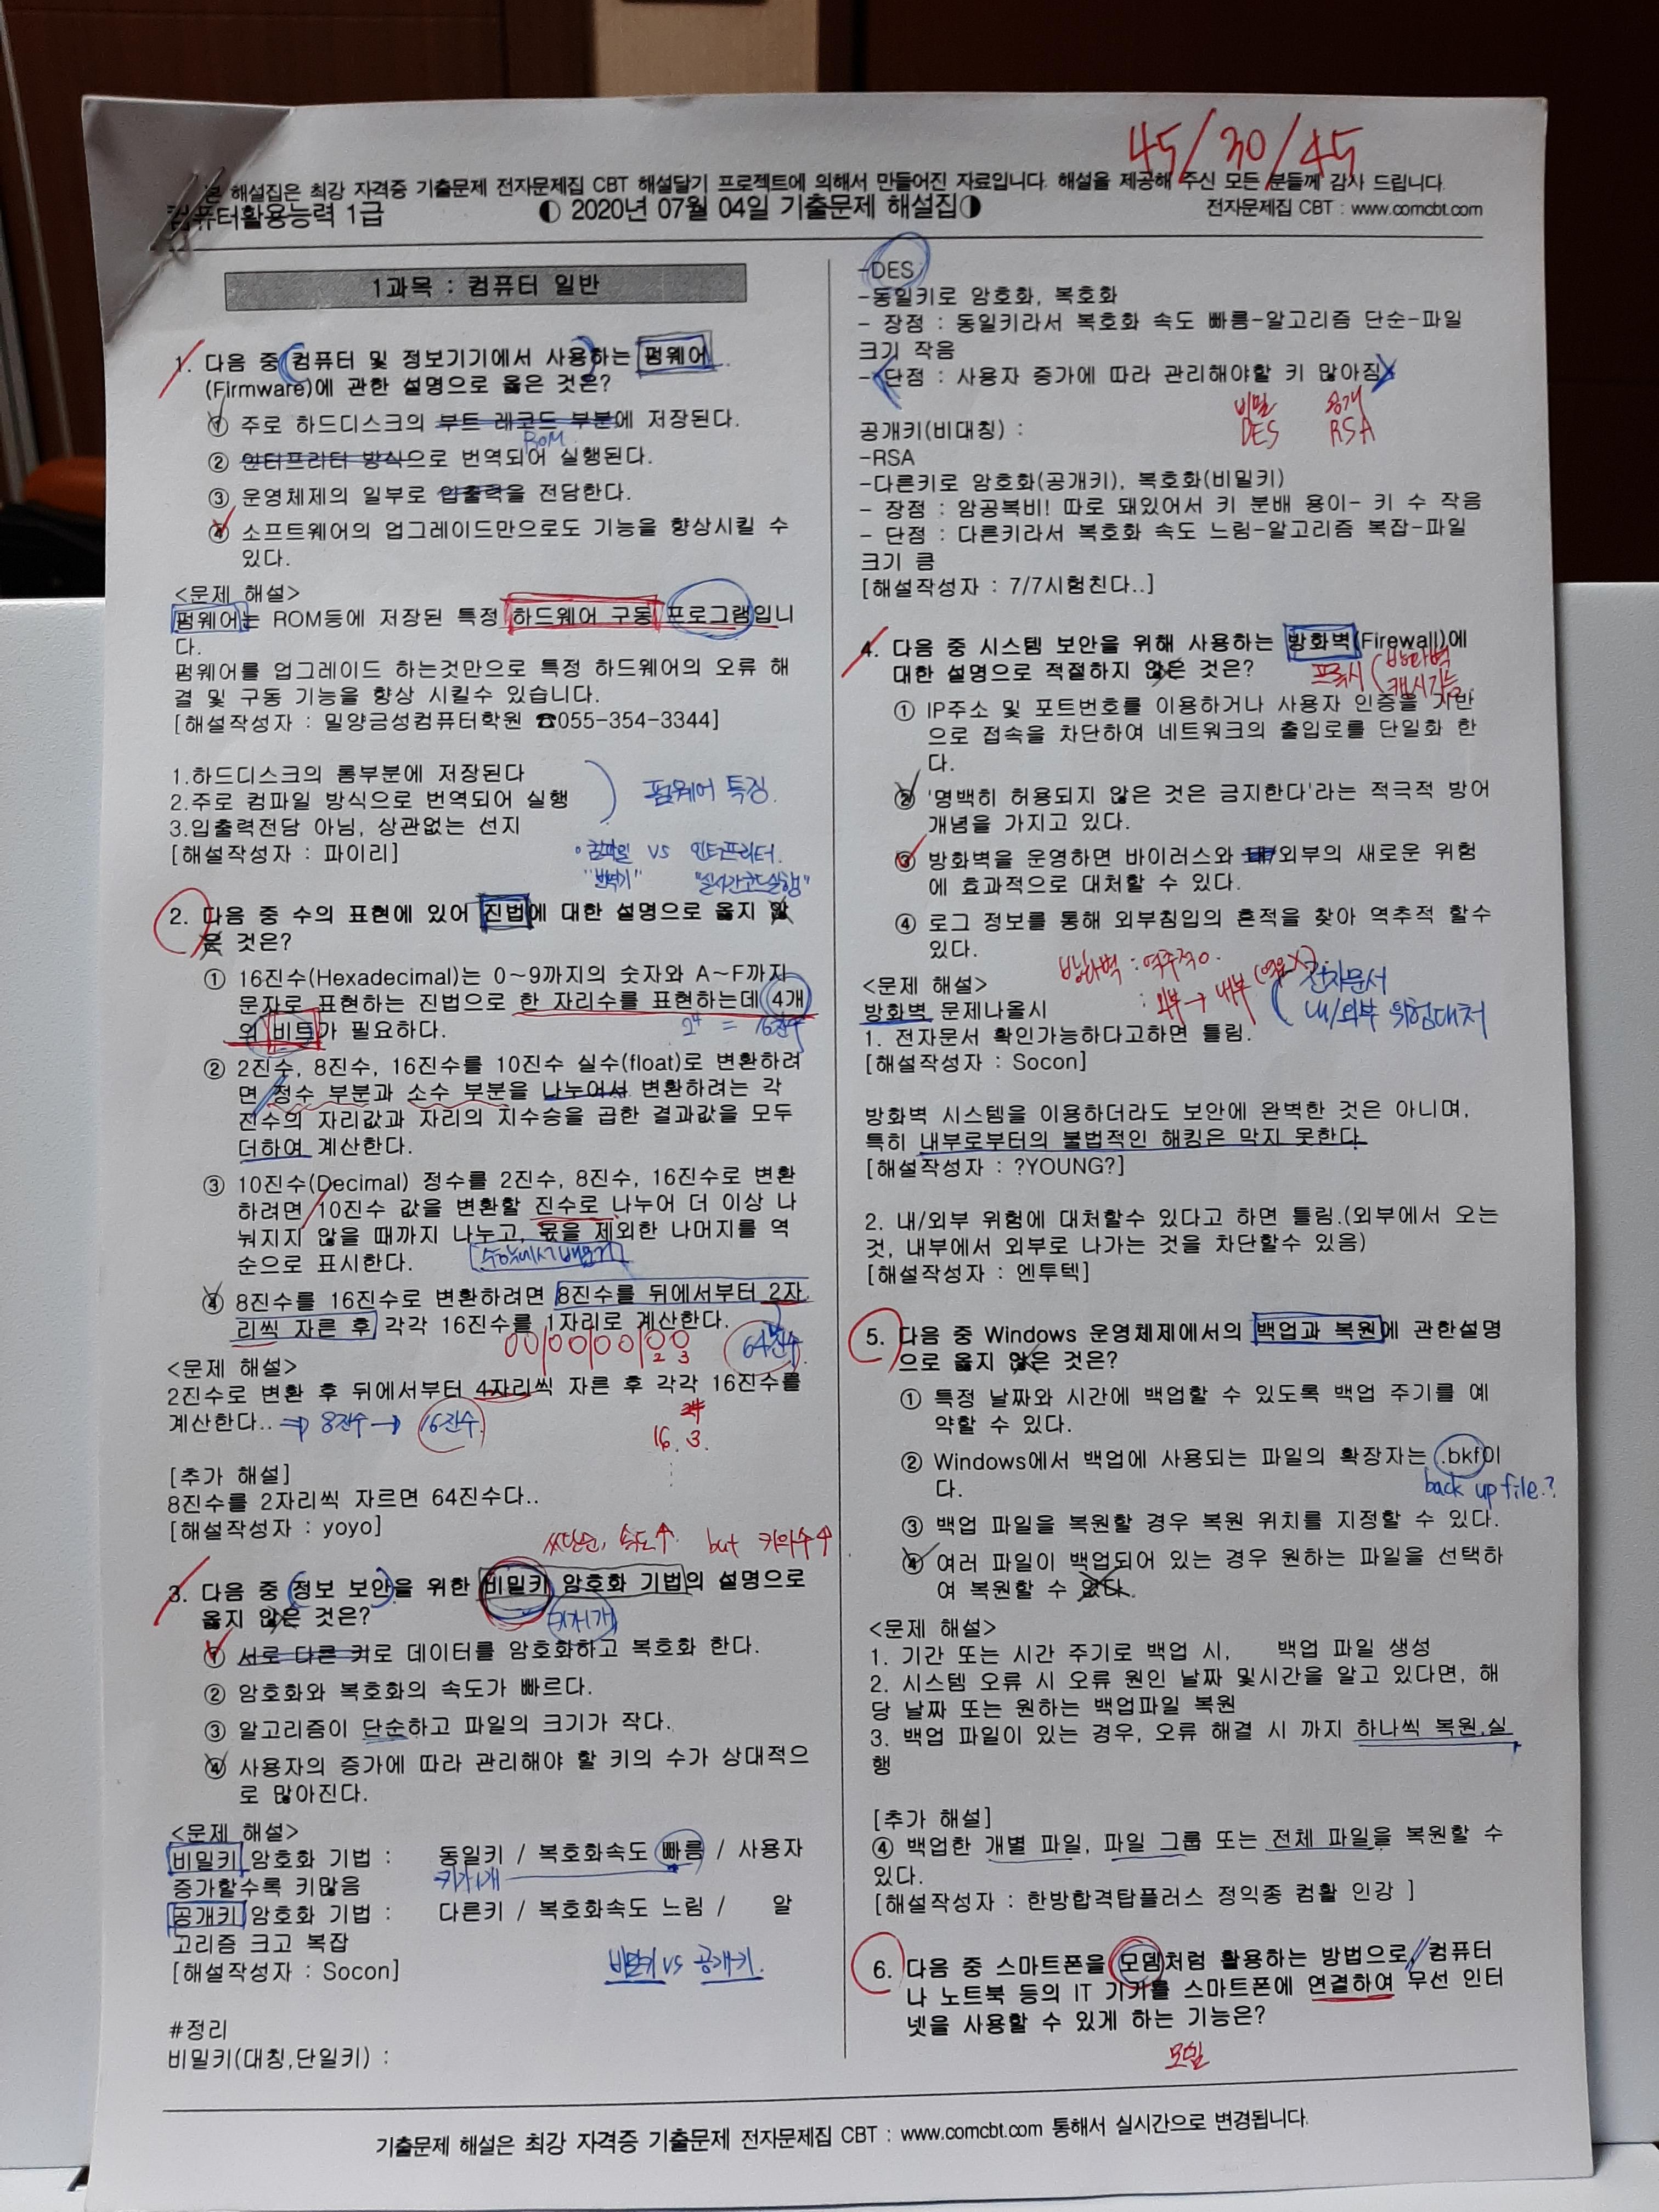 45/30/45
본 해설집은 최강 자격증 기출문제 전자문제집 CBT 해설달기 프로젝트에 의해서 만들어진 자료입니다. 해설을 제공해 주신 모든 분들께 감사 드립니다.
컴퓨터활용능력 1급 ◐ 2020년 07월 04일 기출문제 해설집◑ 전자문제집 CBT : www.comcbt.com
1과목 : 컴퓨터 일반
1. 다음 중 컴퓨터 및 정보기기에서 사용하는 펌웨어
(Firmware)에 관한 설명으로 옳은 것은?
① 주로 하드디스크의 부트 레코드 부분에 저장된다.
ROM
② 인터프리터 방식으로 번역되어 실행된다.
③ 운영체제의 일부로 입출력을 전담한다.
④ 소프트웨어의 업그레이드만으로도 기능을 향상시킬 수
있다.
<문제 해설>
펌웨어는 ROM등에 저장된 특정 하드웨어 구동 프로그램입니
다.
펌웨어를 업그레이드 하는것만으로 특정 하드웨어의 오류 해
결 및 구동 기능을 향상 시킬수 있습니다.
[해설작성자 : 밀양금성컴퓨터학원 ☎055-354-3344]
1.하드디스크의 롬부분에 저장된다
2.주로 컴파일 방식으로 번역되어 실행
펌웨어 특징.
3.입출력전담 아님, 상관없는 선지
[해설작성자 : 파이리]
컴파일 vs 인터프리터.
"번역기" "실시간코드실행"
2. 다음 중 수의 표현에 있어 진법에 대한 설명으로 옳지 않
은 것은?
① 16진수(Hexadecimal)는 0~9까지의 숫자와 A~F까지
문자로 표현하는 진법으로 한 자리수를 표현하는데 4개
의 비트가 필요하다.
2⁴ = 16진수
② 2진수, 8진수, 16진수를 10진수 실수(float)로 변환하려
면 정수 부분과 소수 부분을 나누어서 변환하려는 각
진수의 자리값과 자리의 지수승을 곱한 결과값을 모두
더하여 계산한다.
③ 10진수(Decimal) 정수를 2진수, 8진수, 16진수로 변환
하려면 10진수 값을 변환할 진수로 나누어 더 이상 나
눠지지 않을 때까지 나누고, 몫을 제외한 나머지를 역
순으로 표시한다.
④ 8진수를 16진수로 변환하려면 8진수를 뒤에서부터 2자
리씩 자른 후 각각 16진수를 1자리로 계산한다.
00|00|00|00
2 3
64진수
<문제 해설>
2진수로 변환 후 뒤에서부터 4자리씩 자른 후 각각 16진수를
계산한다.. ⇒ 8진수 → 16진수.
16. 3.
[추가 해설]
8진수를 2자리씩 자르면 64진수다..
[해설작성자 : yoyo]
단순, 속도↑ but 키의수↑
3. 다음 중 정보 보안을 위한 비밀키 암호화 기법의 설명으로
옳지 않은 것은?
키가1개
① 서로 다른 키로 데이터를 암호화하고 복호화 한다.
② 암호화와 복호화의 속도가 빠르다.
③ 알고리즘이 단순하고 파일의 크기가 작다.
④ 사용자의 증가에 따라 관리해야 할 키의 수가 상대적으
로 많아진다.
<문제 해설>
비밀키 암호화 기법 : 동일키 / 복호화속도 빠름 / 사용자
키가1개
증가할수록 키많음
공개키 암호화 기법 : 다른키 / 복호화속도 느림 / 알
고리즘 크고 복잡
[해설작성자 : Socon]
비밀키 vs 공개키.
#정리
비밀키(대칭,단일키) :
-DES
-동일키로 암호화, 복호화
- 장점 : 동일키라서 복호화 속도 빠름-알고리즘 단순-파일
크기 작음
- 단점 : 사용자 증가에 따라 관리해야할 키 많아짐
비밀 공개
DES RSA
공개키(비대칭) :
-RSA
-다른키로 암호화(공개키), 복호화(비밀키)
- 장점 : 암공복비! 따로 돼있어서 키 분배 용이- 키 수 작음
- 단점 : 다른키라서 복호화 속도 느림-알고리즘 복잡-파일
크기 큼
[해설작성자 : 7/7시험친다..]
4. 다음 중 시스템 보안을 위해 사용하는 방화벽(Firewall)에
대한 설명으로 적절하지 않은 것은?
프록시 ( 방화벽
캐시기능
① IP주소 및 포트번호를 이용하거나 사용자 인증을 기반
으로 접속을 차단하여 네트워크의 출입로를 단일화 한
다.
② '명백히 허용되지 않은 것은 금지한다'라는 적극적 방어
개념을 가지고 있다.
③ 방화벽을 운영하면 바이러스와 내/외부의 새로운 위험
에 효과적으로 대처할 수 있다.
④ 로그 정보를 통해 외부침입의 흔적을 찾아 역추적 할수
있다.
방화벽 : 역추적 O.
: 외부 → 내부
전자문서
내/외부 위험대처
<문제 해설>
방화벽 문제나올시
1. 전자문서 확인가능하다고하면 틀림.
[해설작성자 : Socon]
방화벽 시스템을 이용하더라도 보안에 완벽한 것은 아니며,
특히 내부로부터의 불법적인 해킹은 막지 못한다.
[해설작성자 : ?YOUNG?]
2. 내/외부 위험에 대처할수 있다고 하면 틀림.(외부에서 오는
것, 내부에서 외부로 나가는 것을 차단할수 있음)
[해설작성자 : 엔투텍]
5. 다음 중 Windows 운영체제에서의 백업과 복원에 관한설명
으로 옳지 않은 것은?
① 특정 날짜와 시간에 백업할 수 있도록 백업 주기를 예
약할 수 있다.
② Windows에서 백업에 사용되는 파일의 확장자는 .bkf이
다.
back up file.?
③ 백업 파일을 복원할 경우 복원 위치를 지정할 수 있다.
④ 여러 파일이 백업되어 있는 경우 원하는 파일을 선택하
여 복원할 수 없다.
<문제 해설>
1. 기간 또는 시간 주기로 백업 시, 백업 파일 생성
2. 시스템 오류 시 오류 원인 날짜 및시간을 알고 있다면, 해
당 날짜 또는 원하는 백업파일 복원
3. 백업 파일이 있는 경우, 오류 해결 시 까지 하나씩 복원.실
행
[추가 해설]
④ 백업한 개별 파일, 파일 그룹 또는 전체 파일을 복원할 수
있다.
[해설작성자 : 한방합격탑플러스 정익종 컴활 인강 ]
6. 다음 중 스마트폰을 모뎀처럼 활용하는 방법으로, 컴퓨터
나 노트북 등의 IT 기기를 스마트폰에 연결하여 무선 인터
넷을 사용할 수 있게 하는 기능은?
기출문제 해설은 최강 자격증 기출문제 전자문제집 CBT : www.comcbt.com 통해서 실시간으로 변경됩니다.